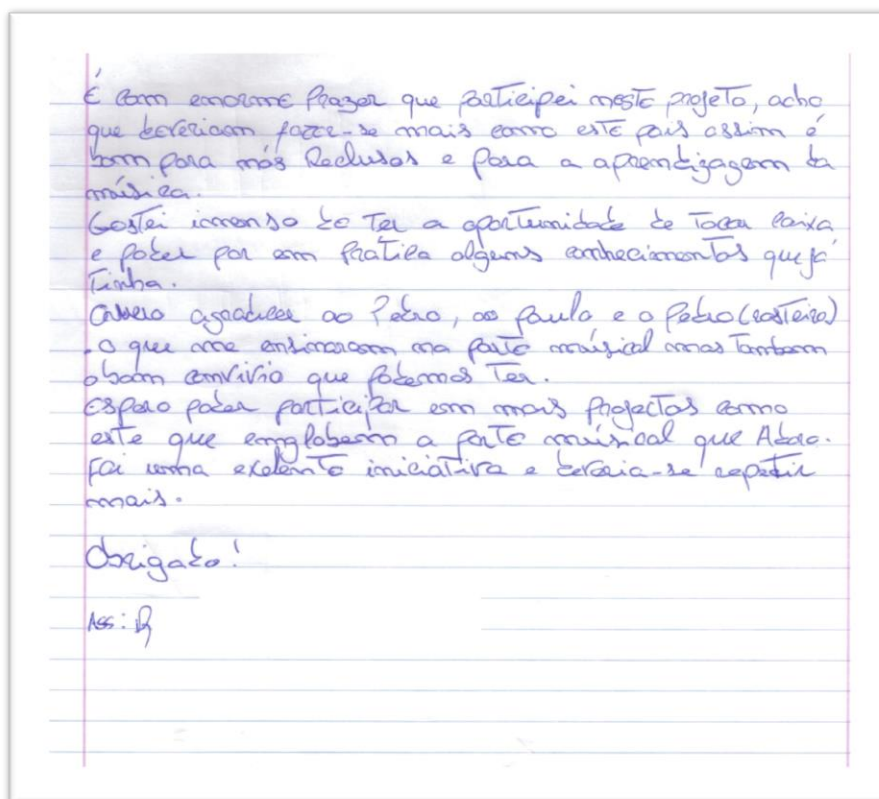 É com enorme Prazer que participei neste projeto, acho
que deveriam fazer-se mais como este pois assim é
bom para nós Reclusos e para a aprendizagem da
música.
Gostei imenso de Ter a oportunidade de Tocar caixa
e poder por em Pratica alguns conhecimentos que já
Tinha.
Quero agradecer ao Pedro, ao paulo e o Pedro (rasteiro)
.o que me ensinaram na parte músical mas Tambem
o bom convivio que podemos Ter.
Espero poder participar em mais Projectos como
este que englobem a parte músical que Adoro.
Foi uma exelente iniciativa e deveria-se repetir
mais.
Obrigado!
Ass: